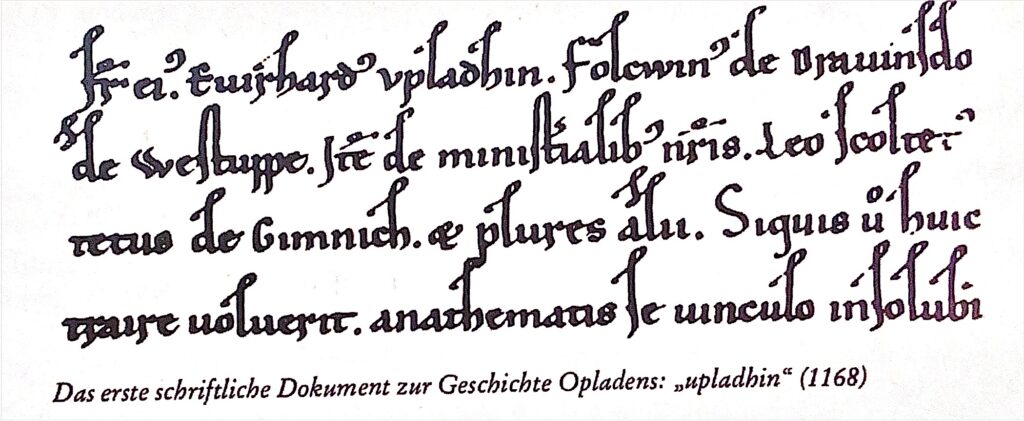 fr̄ ei᾽. Euuirhard᾽ vpladhin. Folcwin᾽ de
de Westuppe. Itē de ministialib᾽ nr̄is. Leo scolte
tetus de Gimnich. & plures alii. Siquis ů huic
traire uoluerit. anathematis se uinculo insolubi
Das erste schriftliche Dokument zur Geschichte Opladens: „upladhin“ (1168)